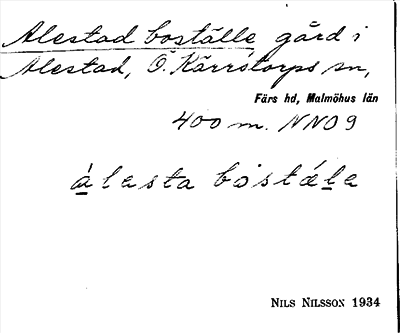 Alestad boställe gård i
Alestad, Ö. Kärrstorps sn,
Färs hd, Malmöhus län
400 m. NNO 9
álesta bostále
NILS NILSSON 1934